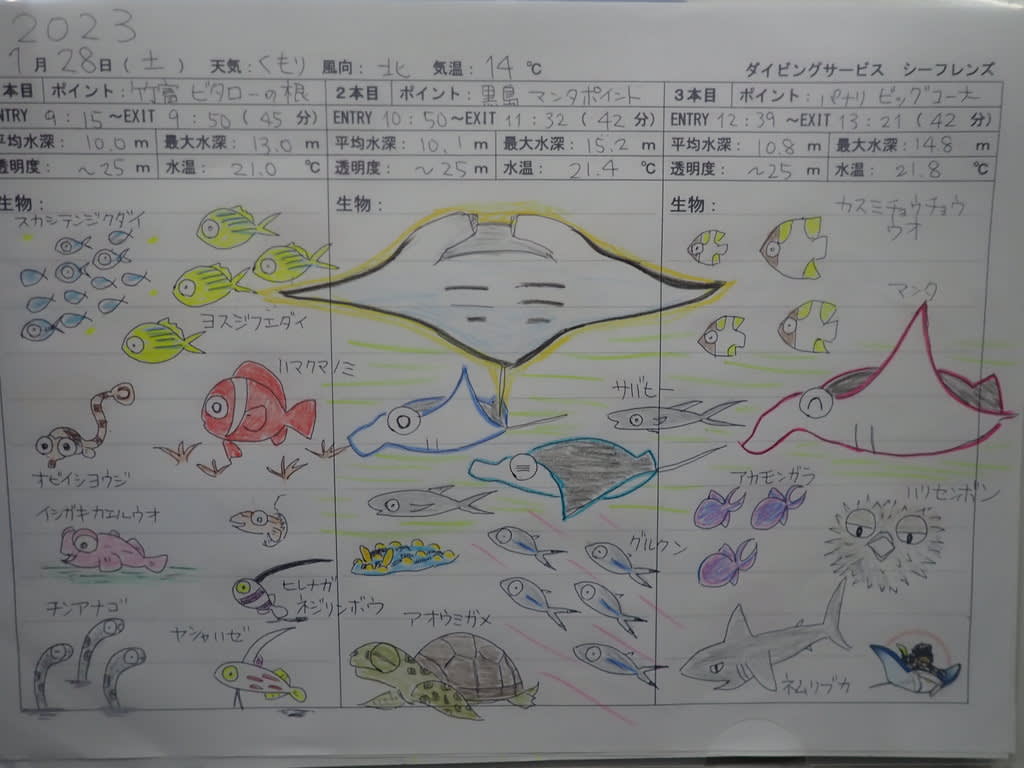 2023
1月28日(土) 天気:くもり 風向:北 気温:14℃ ダイビングサービス シーフレンズ
本目 ポイント:竹富 ビタローの根
NTRY 9:15~EXIT 9:50(45分)
平均水深: 10.0 m 最大水深: 13.0 m
透明度: ~25 m 水温: 21.0 ℃
生物:
スカシテンジクダイ
ヨスジフエダイ
ハマクマノミ
オビイシヨウジ
イシガキカエルウオ
ヒレナガ
ネジリンボウ
チンアナゴ
ヤシャハゼ
2本目 ポイント:黒島 マンタポイント
ENTRY 10:50~EXIT 11:32(42分)
平均水深: 10.1 m 最大水深: 15.2 m
透明度: ~25 m 水温: 21.4 ℃
生物:
サバヒー
グルクン
アオウミガメ
3本目 ポイント:パナリ ビッグコーナー
ENTRY 12:39~EXIT 13:21(42分)
平均水深: 10.8 m 最大水深: 14.8 m
透明度: ~25 m 水温: 21.8 ℃
生物:
カスミチョウチョウ
ウオ
マンタ
アカモンガラ
ハリセンボン
ネムリブカ